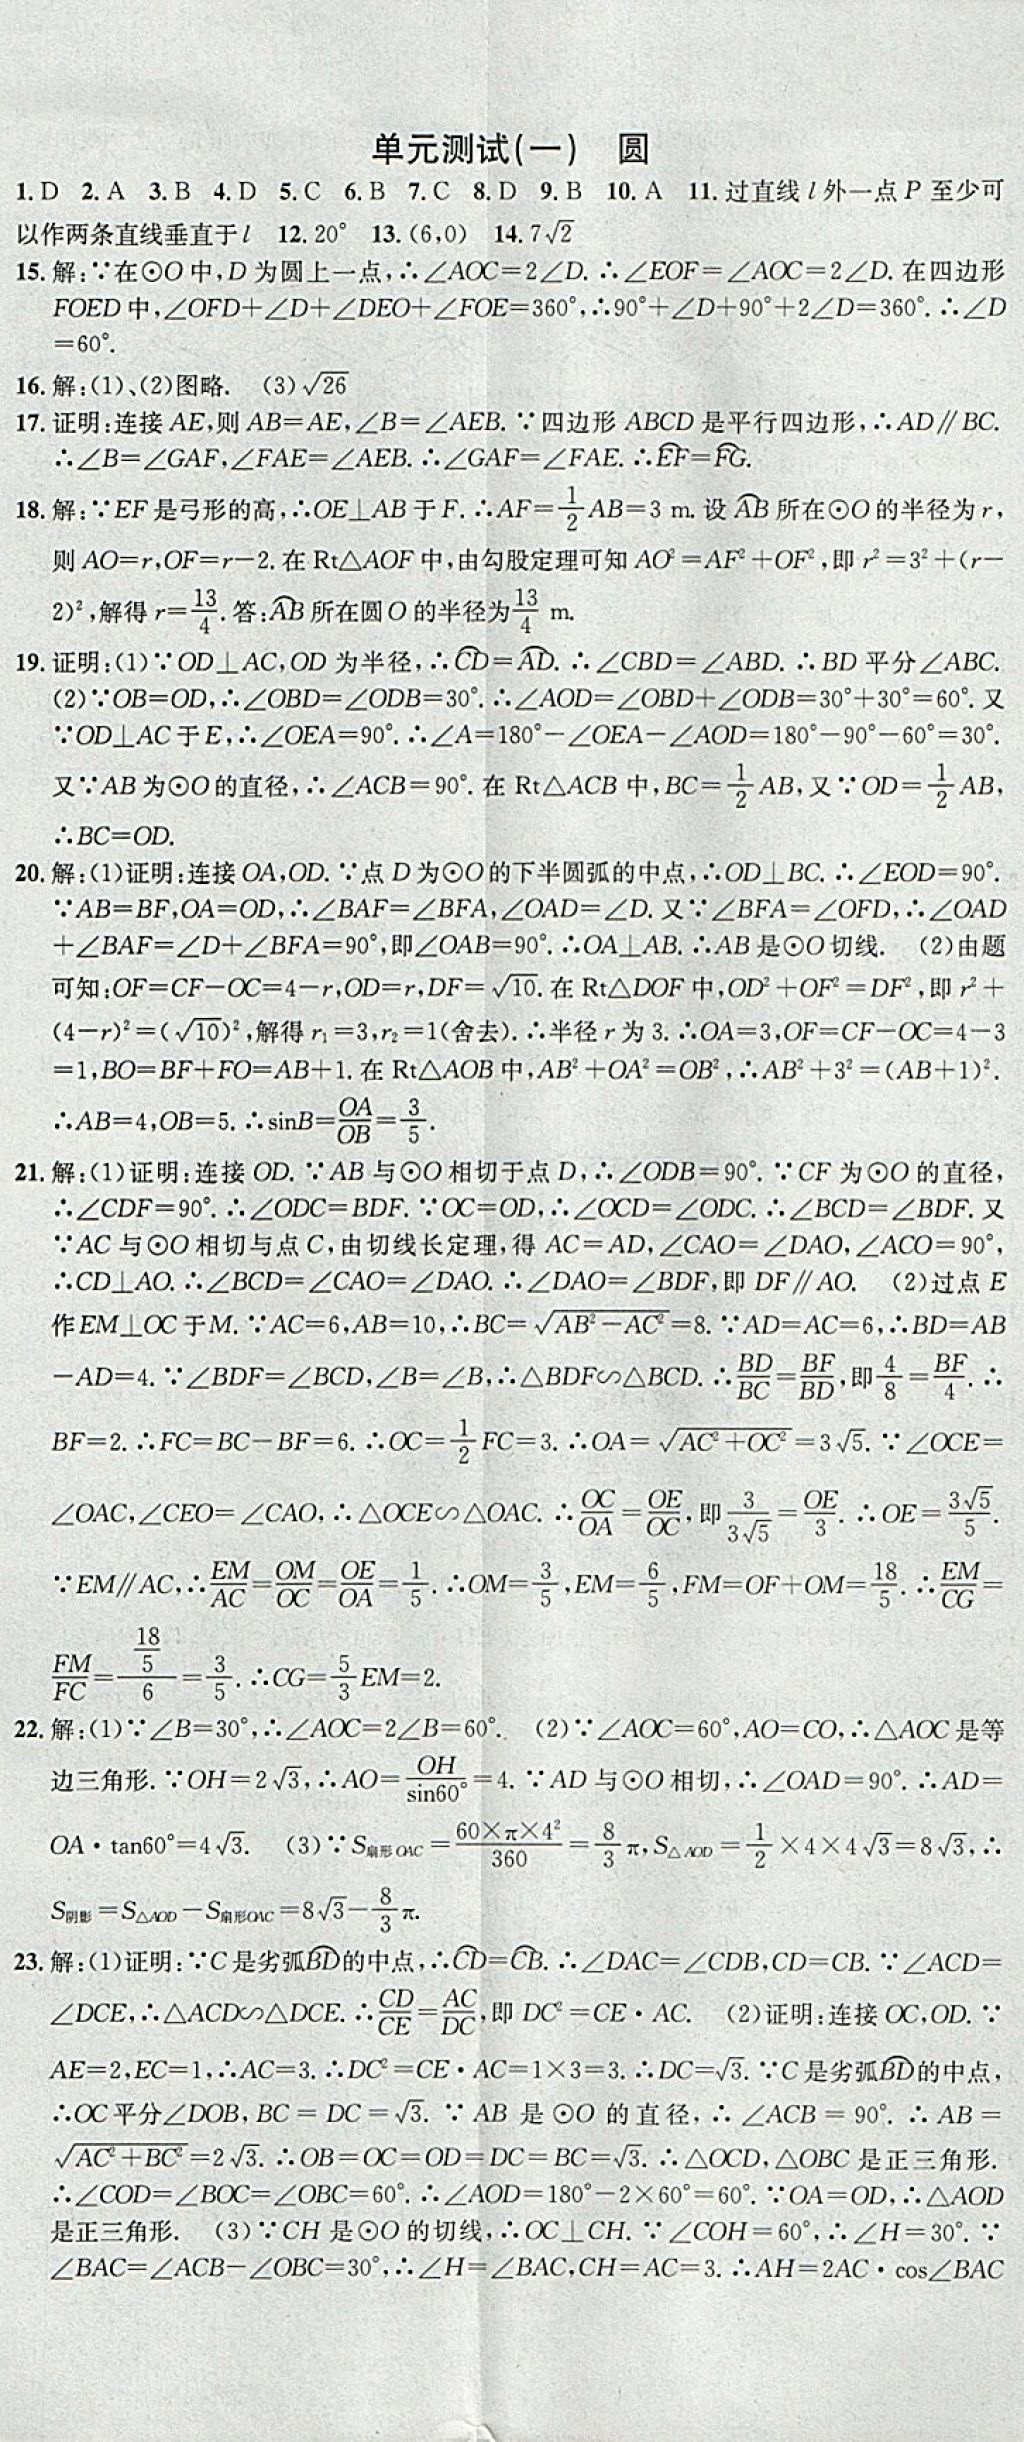 单元测试(一)　圆
1. D　2. A　3. B　4. D　5. C　6. B　7. C　8. D　9. B　10. A　11. 过直线 l 外一点 P 至少可
以作两条直线垂直于 l　12. 20°　13. (6,0)　14. 7√2
15. 解:∵在⊙O 中,D 为圆上一点,∴∠AOC=2∠D. ∴∠EOF=∠AOC=2∠D. 在四边形
FOED 中,∠OFD+∠D+∠DEO+∠FOE=360°,∴90°+∠D+90°+2∠D=360°. ∴∠D
=60°.
16. 解:(1)、(2)图略.　(3)√26
17. 证明:连接 AE,则 AB=AE,∠B=∠AEB. ∵四边形 ABCD 是平行四边形,∴AD∥BC.
∴∠B=∠GAF,∠FAE=∠AEB. ∴∠GAF=∠FAE. ∴E͡F=F͡G.
18. 解:∵EF 是弓形的高,∴OE⊥AB 于 F. ∴AF=1/2 AB=3 m. 设 A͡B 所在⊙O 的半径为 r,
则 AO=r,OF=r−2. 在 Rt△AOF 中,由勾股定理可知 AO²=AF²+OF²,即 r²=3²+(r−
2)²,解得 r=13/4. 答:A͡B 所在圆 O 的半径为 13/4 m.
19. 证明:(1)∵OD⊥AC,OD 为半径,∴C͡D=A͡D. ∴∠CBD=∠ABD. ∴BD 平分∠ABC.
(2)∵OB=OD,∴∠OBD=∠ODB=30°. ∴∠AOD=∠OBD+∠ODB=30°+30°=60°. 又
∵OD⊥AC 于 E,∴∠OEA=90°. ∴∠A=180°−∠OEA−∠AOD=180°−90°−60°=30°.
又∵AB 为⊙O 的直径,∴∠ACB=90°. 在 Rt△ACB 中,BC=1/2 AB,又∵OD=1/2 AB,
∴BC=OD.
20. 解:(1)证明:连接 OA,OD. ∵点 D 为⊙O 的下半圆弧的中点,∴OD⊥BC. ∴∠EOD=90°.
∵AB=BF,OA=OD,∴∠BAF=∠BFA,∠OAD=∠D. 又∵∠BFA=∠OFD,∴∠OAD
+∠BAF=∠D+∠BFA=90°,即∠OAB=90°. ∴OA⊥AB. ∴AB 是⊙O 切线.　(2)由题
可知:OF=CF−OC=4−r,OD=r,DF=√10. 在 Rt△DOF 中,OD²+OF²=DF²,即 r²+
(4−r)²=(√10)²,解得 r₁=3,r₂=1(舍去). ∴半径 r 为 3. ∴OA=3,OF=CF−OC=4−3
=1,BO=BF+FO=AB+1. 在 Rt△AOB 中,AB²+OA²=OB²,∴AB²+3²=(AB+1)².
∴AB=4,OB=5. ∴sinB=OA/OB=3/5.
21. 解:(1)证明:连接 OD. ∵AB 与⊙O 相切于点 D,∴∠ODB=90°. ∵CF 为⊙O 的直径,
∴∠CDF=90°. ∴∠ODC=BDF. ∵OC=OD,∴∠OCD=∠ODC. ∴∠BCD=∠BDF. 又
∵AC 与⊙O 相切与点 C,由切线长定理,得 AC=AD,∠CAO=∠DAO,∠ACO=90°,
∴CD⊥AO. ∴∠BCD=∠CAO=∠DAO. ∴∠DAO=∠BDF,即 DF∥AO.　(2)过点 E
作 EM⊥OC 于 M. ∵AC=6,AB=10,∴BC=√(AB²−AC²)=8. ∵AD=AC=6,∴BD=AB
−AD=4. ∵∠BDF=∠BCD,∠B=∠B,∴△BDF∽△BCD. ∴BD/BC=BF/BD,即 4/8=BF/4. ∴
BF=2. ∴FC=BC−BF=6. ∴OC=1/2 FC=3. ∴OA=√(AC²+OC²)=3√5. ∵∠OCE=
∠OAC,∠CEO=∠CAO,∴△OCE∽△OAC. ∴OC/OA=OE/OC,即 3/(3√5)=OE/3. ∴OE=3√5/5.
∵EM∥AC,∴EM/AC=OM/OC=OE/OA=1/5. ∴OM=3/5,EM=6/5,FM=OF+OM=18/5. ∴EM/CG=
FM/FC=(18/5)/6=3/5. ∴CG=5/3 EM=2.
22. 解:(1)∵∠B=30°,∴∠AOC=2∠B=60°.　(2)∵∠AOC=60°,AO=CO,∴△AOC 是等
边三角形. ∵OH=2√3,∴AO=OH/sin60°=4. ∵AD 与⊙O 相切,∴∠OAD=90°. ∴AD=
OA·tan60°=4√3.　(3)∵S扇形OAC=(60×π×4²)/360=8/3 π,S△AOD=1/2×4×4√3=8√3,∴
S阴影=S△AOD−S扇形OAC=8√3−8/3 π.
23. 解:(1)证明:∵C 是劣弧B͡D的中点,∴C͡D=C͡B. ∴∠DAC=∠CDB,CD=CB. ∵∠ACD=
∠DCE,∴△ACD∽△DCE. ∴CD/CE=AC/DC,即 DC²=CE·AC.　(2)证明:连接 OC,OD. ∵
AE=2,EC=1,∴AC=3. ∴DC²=CE·AC=1×3=3. ∴DC=√3. ∵C 是劣弧B͡D的中点,
∴OC 平分∠DOB,BC=DC=√3. ∵AB 是⊙O 的直径,∴∠ACB=90°. ∴AB=
√(AC²+BC²)=2√3. ∴OB=OC=OD=DC=BC=√3. ∴△OCD,△OBC 是正三角形.
∴∠COD=∠BOC=∠OBC=60°. ∴∠AOD=180°−2×60°=60°. ∵OA=OD,∴△AOD
是正三角形.　(3)∵CH 是⊙O 的切线,∴OC⊥CH. ∵∠COH=60°,∴∠H=30°. ∵
∠BAC=∠ACB−∠OBC=30°,∴∠H=∠BAC,CH=AC=3. ∴AH=2AC·cos∠BAC